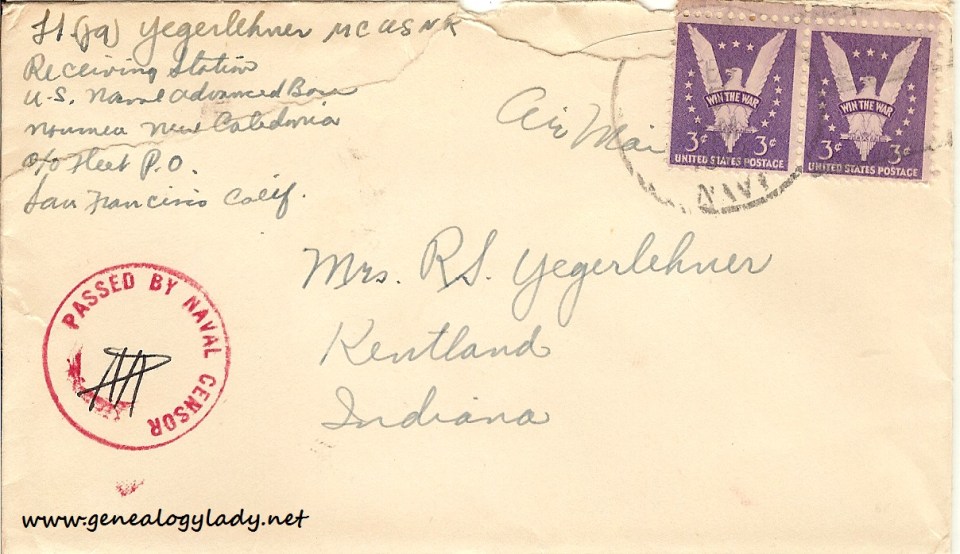 Lt (jg) Yegerlehner MC USNR
Receiving Station
U.S. Naval Advanced Base
Noumea New Caledonia
c/o Fleet P.O.
San Francisco Calif.
Air Mail
WIN THE WAR
3¢ 3¢
UNITED STATES POSTAGE
WIN THE WAR
3¢ 3¢
UNITED STATES POSTAGE
NAVY
Mrs. R.S. Yegerlehner
Kentland
Indiana
PASSED BY NAVAL CENSOR
www.genealogylady.net